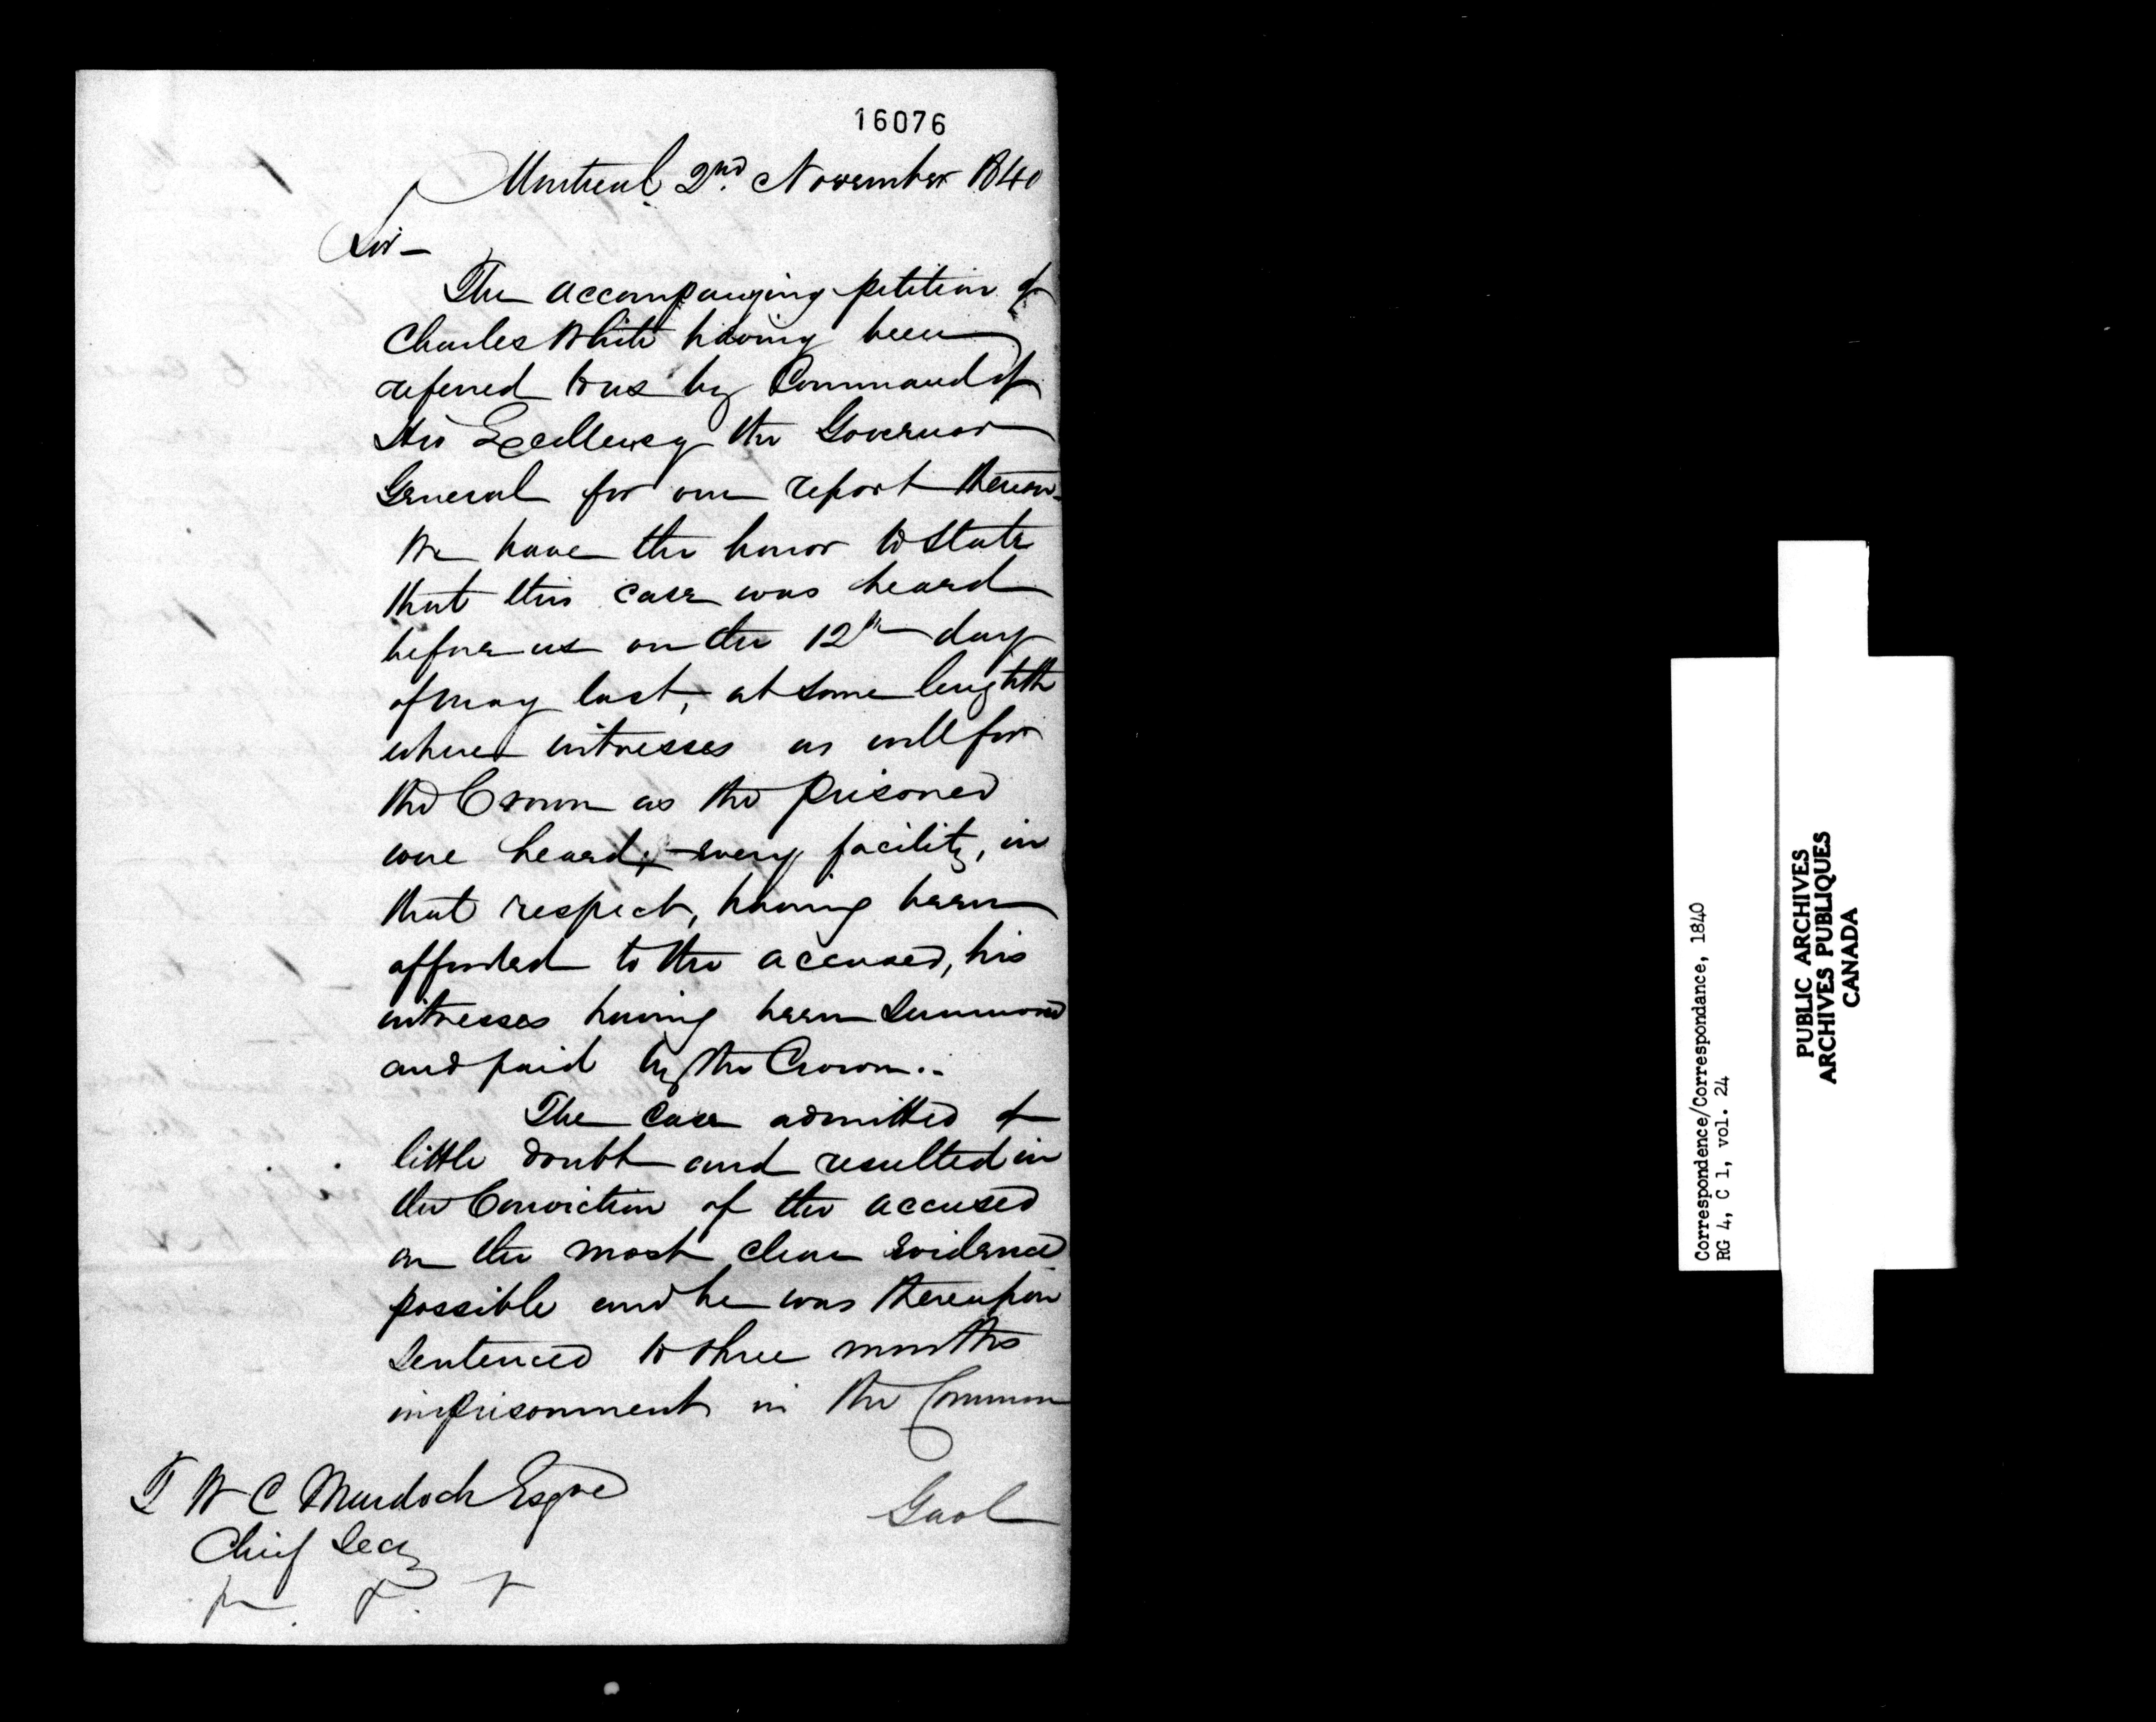 16076
Montreal 2nd. November 1840
Sir –
The accompanying petition of
Charles White having been
referred to us by Command of
His Excellency the Governor
General for our report thereon
We have the honor to state
that this case was heard
before us on the 12th day
of May last, at some length
where witnesses as well for
the Crown as the prisoner
were heard, – every facility, in
that respect, having been
afforded to the accused, his
witnesses having been summoned
and paid by the Crown. –
The Case admitted of
little doubt and resulted in
the Conviction of the accused
on the most clear evidence
possible and he was thereupon
sentenced to three months
imprisonment in the Common
Gaol
T W C Murdoch Esqre
Chief Secy
Correspondence/Correspondance, 1840
RG 4, C 1, vol. 24
PUBLIC ARCHIVES
ARCHIVES PUBLIQUES
CANADA